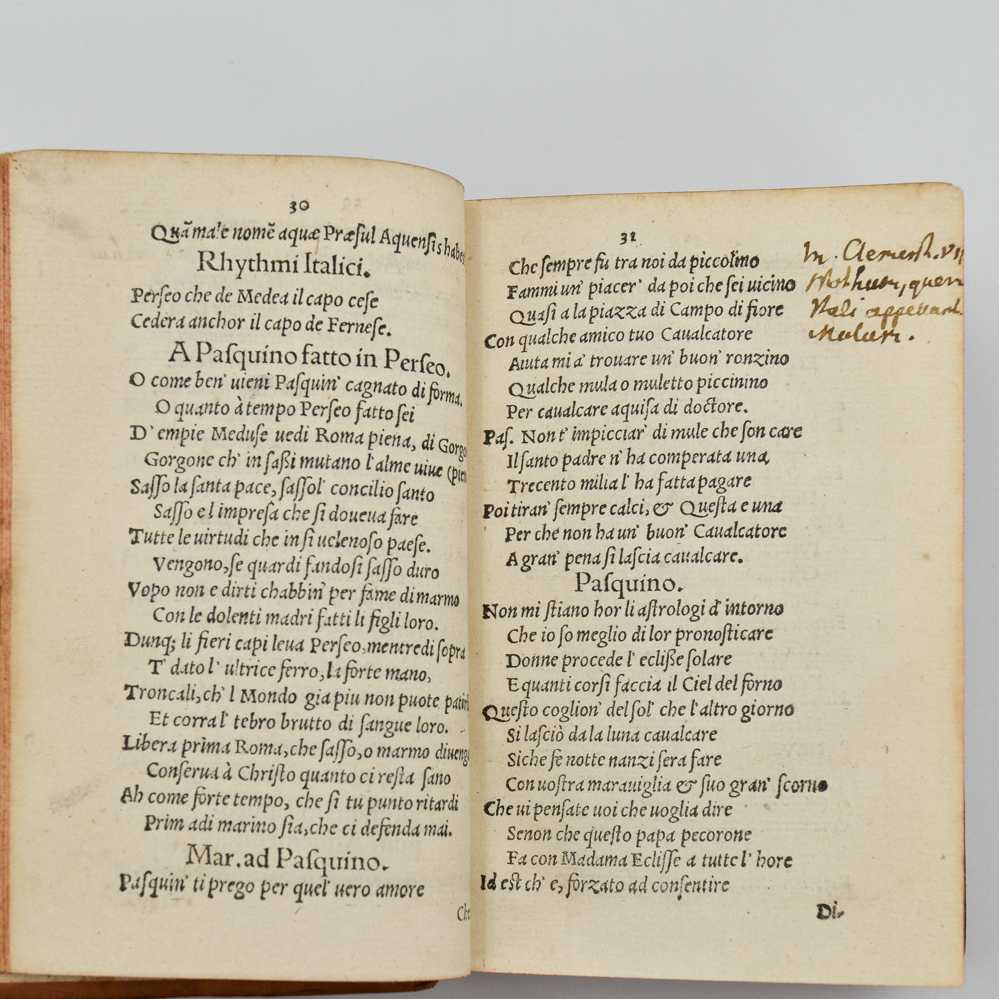 30
Quā male nomē aquæ Præsul Aquensis habet
Rhythmi Italici.
Perseo che de Medea il capo cese
Cedera anchor il capo de Fernese.
A Pasquino fatto in Perseo.
O come ben' uieni Pasquin' cagnato di forma,
O quanto à tempo Perseo fatto sei
D' empie Meduse uedi Roma piena, di Gorgo
Gorgone ch' in saßi mutano l'alme uiue (pien
Sasso la santa pace, sassol' concilio santo
Sasso e l impresa che si doueua fare
Tutte le uirtudi che in si uelenoso paese.
Vengono, se quardi fandosi sasso duro
Vopo non e dirti chabbin' per fame di marmo
Con le dolenti madri fatti li figli loro.
Dunq; li fieri capi leua Perseo, mentre di sopra
T' dato l' ultrice ferro, la forte mano,
Troncali, ch' l Mondo gia piu non puote patirli
Et corra l' tebro brutto di sangue loro.
Libera prima Roma, che sasso, o marmo diueng
Conserua à Christo quanto ci resta sano
Ah come forte tempo, che si tu punto ritardi
Prim adi marino sia, che ci defenda mai.
Mar. ad Pasquino.
Pasquin' ti prego per quel' uero amore
Che
31
Che sempre fu tra noi da piccolino
Fammi un' piacer' da poi che sei uicino
Quasi a la piazza di Campo di fiore
Con qualche amico tuo Caualcatore
Aiuta mi a' trouare un' buon' ronzino
Qualche mula o muletto piccinino
Per caualcare aquisa di doctore.
Pas. Non t' impicciar' di mule che son care
Il santo padre n' ha comperata una
Trecento milia l' ha fatta pagare
Poi tiran' sempre calci, & Questa e una
Per che non ha un' buon' Caualcatore
A gran' pena si lascia caualcare.
Pasquino.
Non mi stiano hor li astrologi d' intorno
Che io so meglio di lor pronosticare
Donne procede l' eclißе solare
E quanti corsi faccia il Ciel del forno
Questo coglion' del sol' che l'altro giorno
Si lasciò da la luna caualcare
Siche fe notte nanzi sera fare
Con uostra marauiglia & suo gran' scorno
Che ui pensate uoi che uoglia dire
Senon che questo papa pecorone
Fa con Madama Eclisse a tutte l' hore
Id est ch' e, forzato ad consentire
Di-
In. Clement. VII
Nothum, quem
Itali appellant
Mulum.